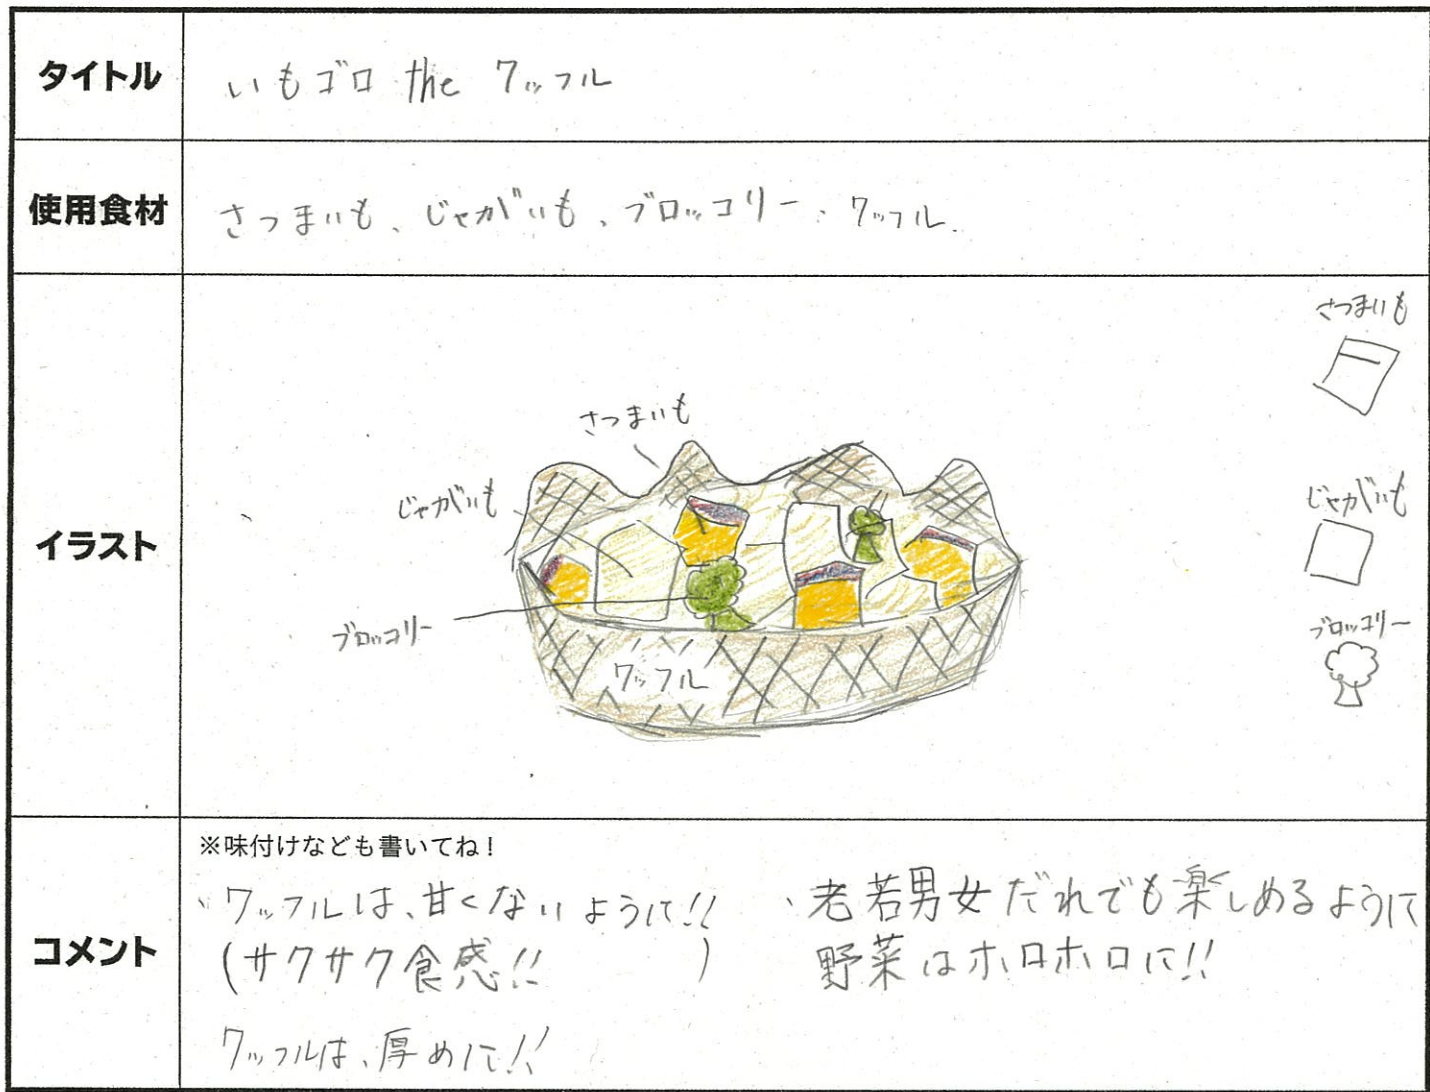 タイトル
いもゴロ the ワッフル
使用食材
さつまいも、じゃがいも、ブロッコリー、ワッフル.
イラスト
さつまいも
じゃがいも
ブロッコリー
さつまいも
じゃがいも
ブロッコリー
ワッフル
コメント
※味付けなども書いてね！
・ワッフルは、甘くないように!!
(サクサク食感!! )
ワッフルは、厚めに!!
・老若男女だれでも楽しめるように
野菜はホロホロに!!